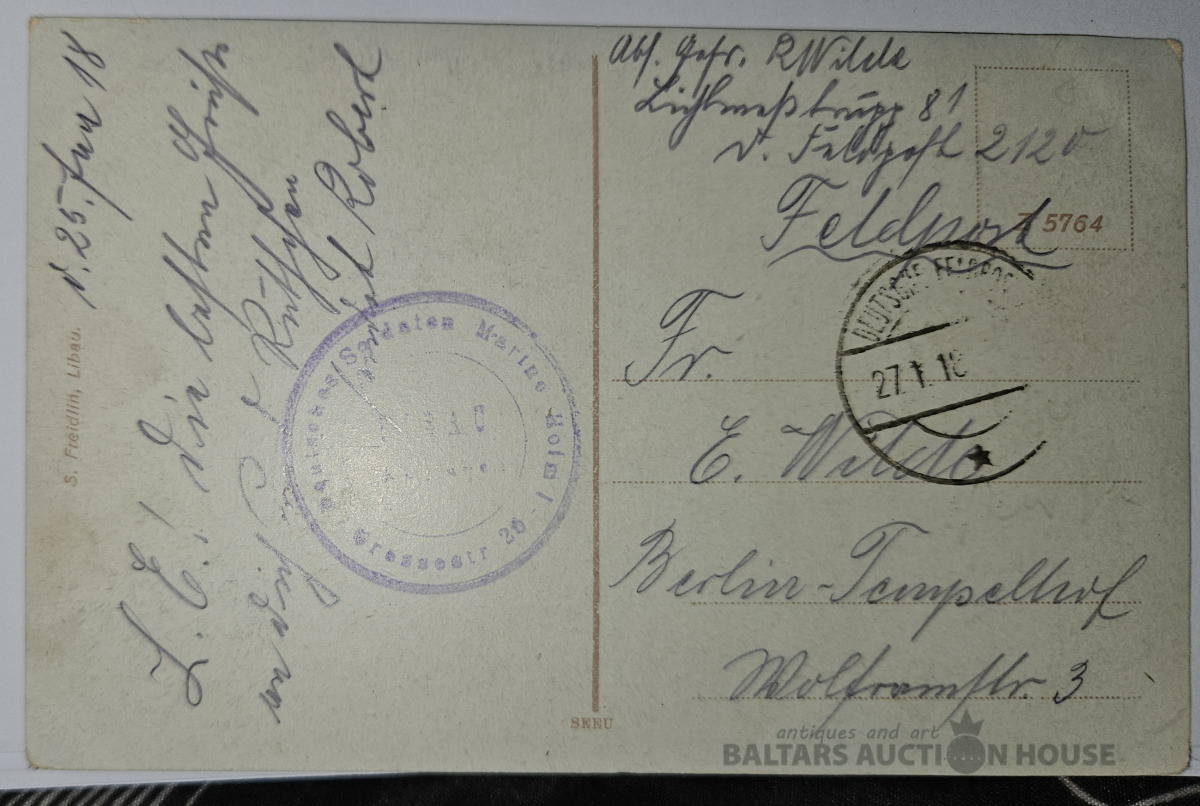 d. 25. Jan 18
L. E.! Die besten Grüße
an dich
Robert
S. Freidlin, Libau.
Deutsches Soldaten Marine Heim
LIBAU
Grossestr 26
SEEU
Abs. Gefr. R Wilde
Lichtmeßtrupp 81
D. Feldpost 2120
Feldpost
5764
DEUTSCHE FELDPOST
27.1.18
Fr.
E. Wilde
Berlin-Tempelhof
Wolframstr. 3
antiques and art
BALTARS AUCTION HOUSE